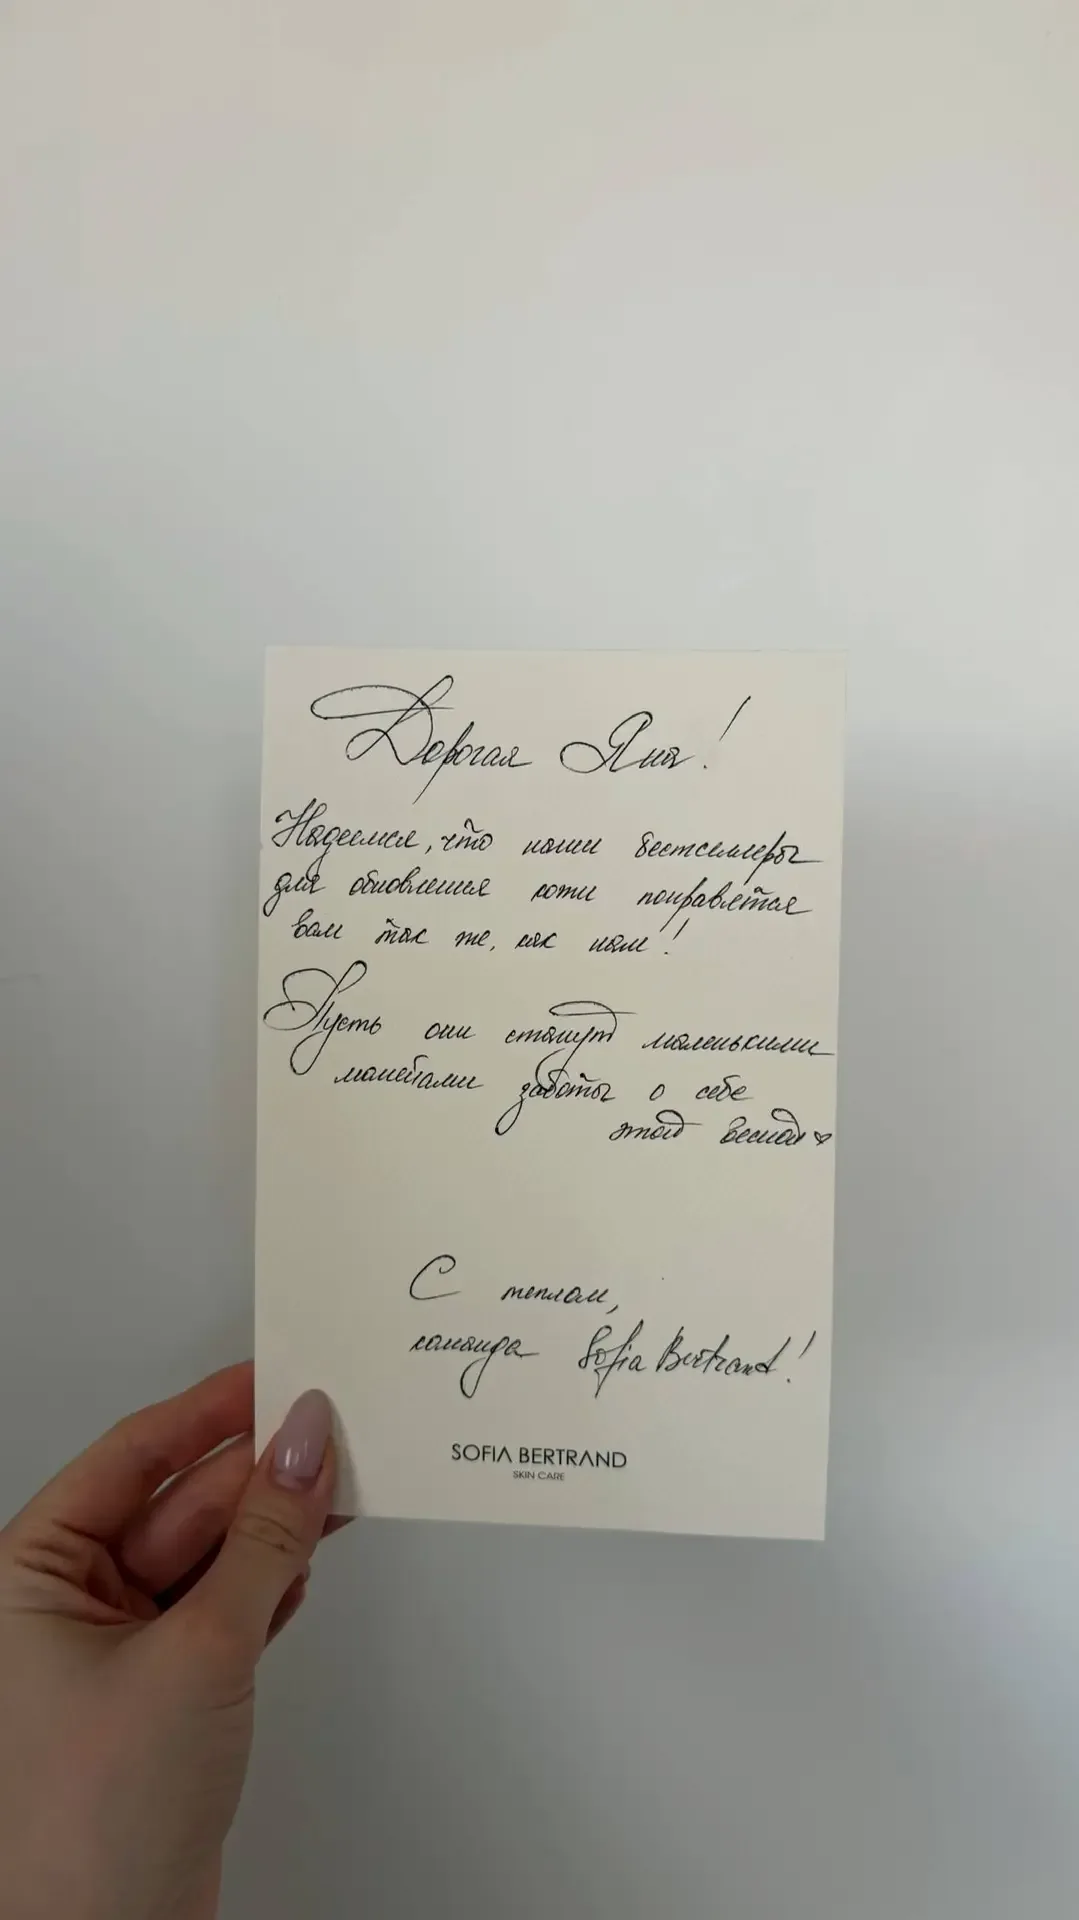 Дорогая Яна!
Надеемся, что наши бестселлеры
для обновления кожи понравятся
вам так же, как нам!
Пусть они станут маленькими
моментами заботы о себе
этой весной♡
С теплом,
команда Sofia Bertrand!
SOFIA BERTRAND
SKIN CARE